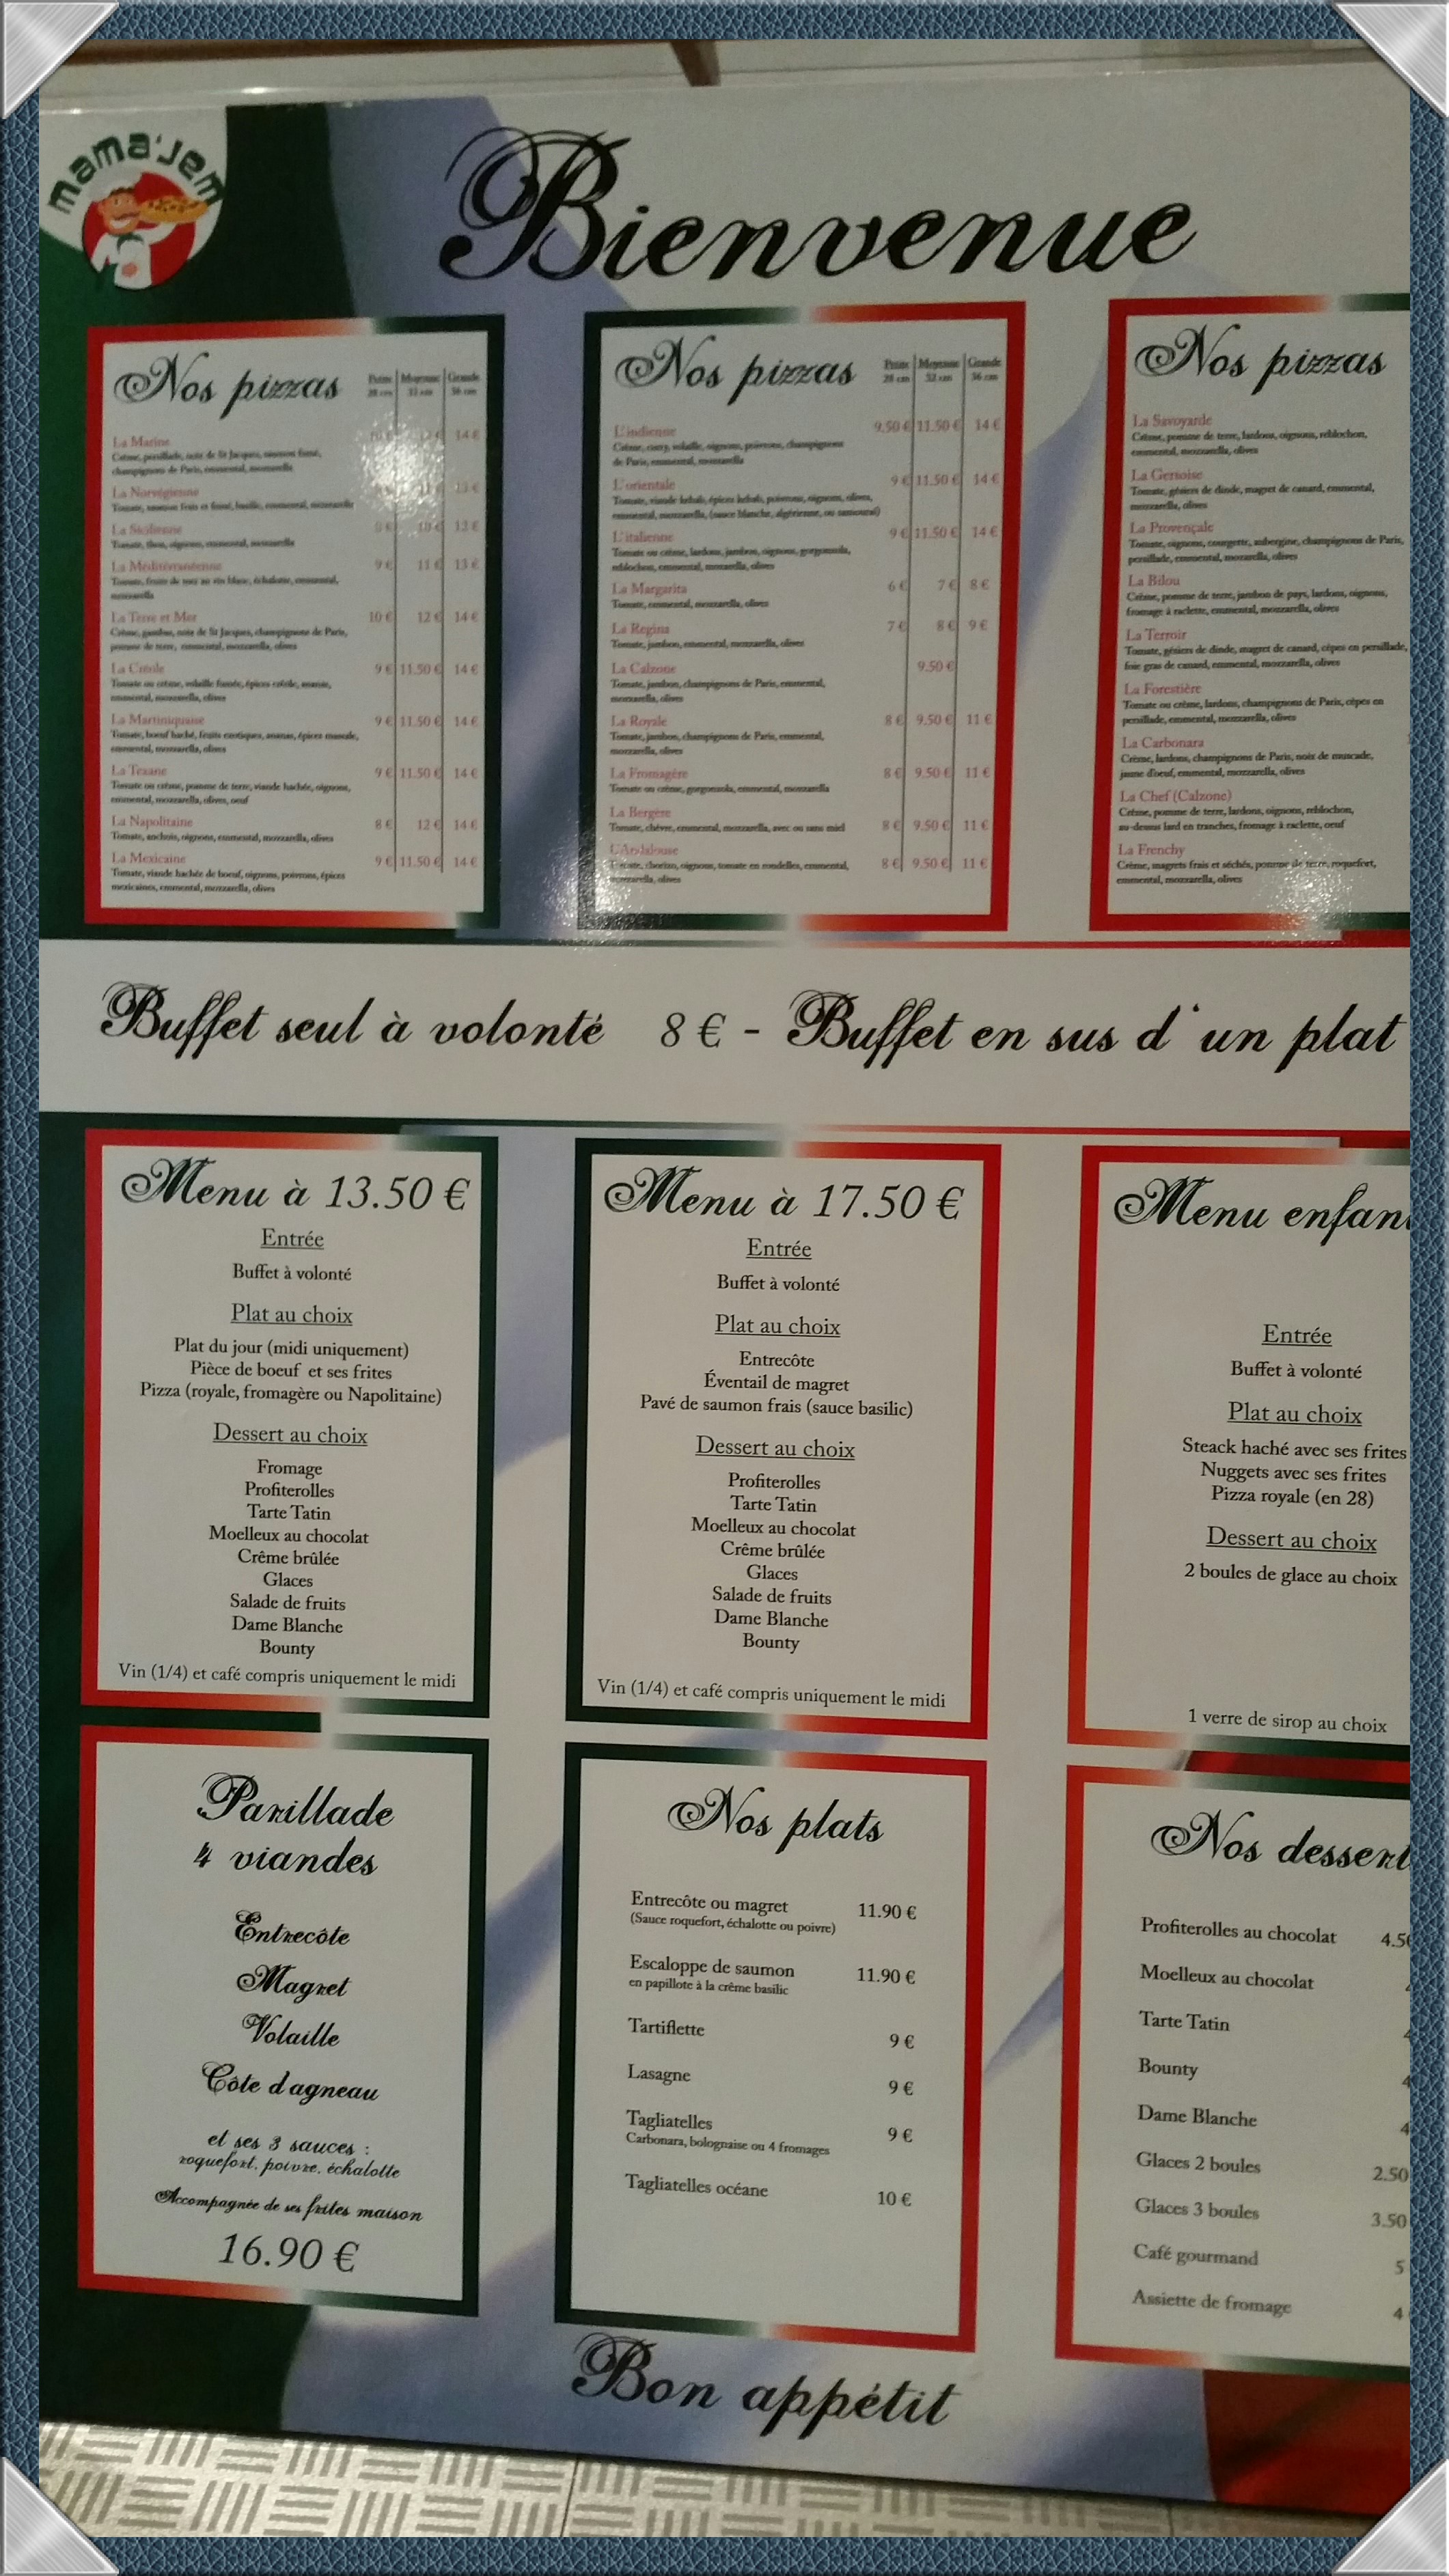 mama'jem
Bienvenue
Nos pizzas
Petite Moyenne Grande
28 cm 32 cm 36 cm
La Marine 14 €
Crème, persillade, noix de St Jacques, saumon fumé,
champignons de Paris, emmental, mozzarella
La Norvégienne 13 €
Tomate, saumon frais et fumé, basilic, emmental, mozzarella
La Sicilienne
Tomate, thon, oignons, emmental, mozzarella
La Méditerranéenne 9 € 11 € 13 €
Tomate, fruits de mer au vin blanc, échalote, emmental,
mozzarella
La Terre et Mer 10 € 12 € 14 €
Crème, gambas, noix de St Jacques, champignons de Paris,
pomme de terre, emmental, mozzarella, olives
La Créole 9 € 11.50 € 14 €
Tomate ou crème, volaille fumée, épices créole, ananas,
emmental, mozzarella, olives
La Martiniquaise 9 € 11.50 € 14 €
Tomate, boeuf haché, fruits exotiques, ananas, épices
emmental, mozzarella, olives
La Texane 9 € 11.50 € 14 €
Tomate ou crème, pomme de terre, viande hachée, oignons,
emmental, mozzarella, olives, oeuf
La Napolitaine 8 € 12 € 14 €
Tomate, anchois, oignons, emmental, mozzarella, olives
La Mexicaine 9 € 11.50 € 14 €
Tomate, viande hachée de boeuf, oignons, poivrons, épices
mexicaines, emmental, mozzarella, olives
Nos pizzas
Petite Moyenne Grande
28 cm 32 cm 36 cm
L'indienne 9.50 € 11.50 € 14 €
Crème, curry, volaille, oignons, poivrons, champignons
de Paris, emmental, mozzarella
L'orientale 9 € 11.50 € 14 €
Tomate, viande kebab, épices kebab, poivrons, oignons, olives,
emmental, mozzarella, (sauce blanche, algérienne, ou samouraï)
L'italienne 9 € 11.50 € 14 €
Tomate ou crème, lardons, jambon, oignons, gorgonzola,
reblochon, emmental, mozzarella, olives
La Margarita 6 € 7 € 8 €
Tomate, emmental, mozzarella, olives
La Regina 7 € 8 € 9 €
Tomate, jambon, emmental, mozzarella, olives
La Calzone 9.50 €
Tomate, jambon, champignons de Paris, emmental,
mozzarella, olives
La Royale 8 € 9.50 € 11 €
Tomate, jambon, champignons de Paris, emmental,
mozzarella, olives
La Fromagère 8 € 9.50 € 11 €
Tomate ou crème, gorgonzola, emmental, mozzarella
La Bergère
Tomate, chèvre, emmental, mozzarella, avec ou sans miel 8 € 9.50 € 11 €
L'Andalouse
Tomate, chorizo, oignons, tomate en rondelles, emmental, 8 € 9.50 € 11 €
mozzarella, olives
Nos pizzas
La Savoyarde
Crème, pomme de terre, lardons, oignons, réblochon,
emmental, mozzarella, olives
La Gersoise
Tomate, gésiers de dinde, magret de canard, emmental,
mozzarella, olives
La Provençale
Tomate, oignons, courgette, aubergine, champignons de Paris,
persillade, emmental, mozzarella, olives
La Bilou
Crème, pomme de terre, jambon de pays, lardons, oignons,
fromage à raclette, emmental, mozzarella, olives
La Terroir
Tomate, gésiers de dinde, magret de canard, cèpes en persillade,
foie gras de canard, emmental, mozzarella, olives
La Forestière
Tomate ou crème, lardons, champignons de Paris, cèpes en
persillade, emmental, mozzarella, olives
La Carbonara
Crème, lardons, champignons de Paris, noix de muscade,
jaune d'oeuf, emmental, mozzarella, olives
La Chef (Calzone)
Crème, pomme de terre, lardons, oignons, réblochon,
au-dessus lard en tranches, fromage à raclette, oeuf
La Frenchy
Crème, magrets frais et séchés, pomme de terre, roquefort,
emmental, mozzarella, olives
Buffet seul à volonté 8 € - Buffet en sus d'un plat
Menu à 13.50 €
Entrée
Buffet à volonté
Plat au choix
Plat du jour (midi uniquement)
Pièce de boeuf et ses frites
Pizza (royale, fromagère ou Napolitaine)
Dessert au choix
Fromage
Profiterolles
Tarte Tatin
Moelleux au chocolat
Crême brûlée
Glaces
Salade de fruits
Dame Blanche
Bounty
Vin (1/4) et café compris uniquement le midi
Menu à 17.50 €
Entrée
Buffet à volonté
Plat au choix
Entrecôte
Éventail de magret
Pavé de saumon frais (sauce basilic)
Dessert au choix
Profiterolles
Tarte Tatin
Moelleux au chocolat
Crême brûlée
Glaces
Salade de fruits
Dame Blanche
Bounty
Vin (1/4) et café compris uniquement le midi
Menu enfan
Entrée
Buffet à volonté
Plat au choix
Steack haché avec ses frites
Nuggets avec ses frites
Pizza royale (en 28)
Dessert au choix
2 boules de glace au choix
1 verre de sirop au choix
Parillade
4 viandes
Entrecôte
Magret
Volaille
Côte d'agneau
et ses 3 sauces :
roquefort, poivre, échalotte
Accompagnée de ses frites maison
16.90 €
Nos plats
Entrecôte ou magret 11.90 €
(Sauce roquefort, échalotte ou poivre)
Escaloppe de saumon 11.90 €
en papillote à la crême basilic
Tartiflette 9 €
Lasagne 9 €
Tagliatelles 9 €
Carbonara, bolognaise ou 4 fromages
Tagliatelles océane 10 €
Nos dessert
Profiterolles au chocolat 4.50
Moelleux au chocolat
Tarte Tatin 4
Bounty 4
Dame Blanche 4
Glaces 2 boules 2.50
Glaces 3 boules 3.50
Café gourmand 5
Assiette de fromage 4
Bon appétit